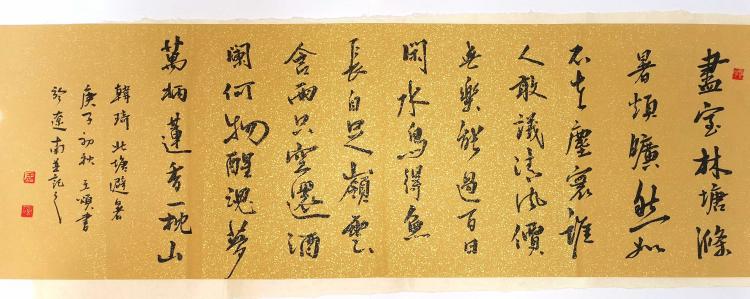 盡室林塘滌
暑煩曠然如
不在塵寰誰
人敢議清風價
無樂能過百日
閑水鳥得魚
長自足嶺雲
含雨只空還酒
闌何物醒魂夢
萬柄蓮香一枕山
韓琦北塘避暑
庚子初秋王書
於遼南並記之